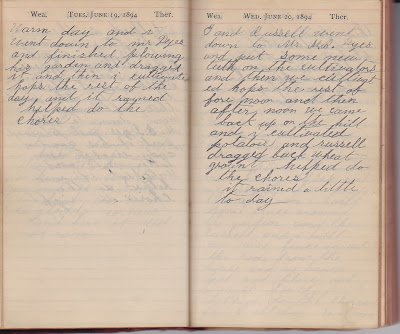 Wea. TUES. JUNE 19, 1894 Ther.
Warm day and I
went down to Mr Dyes
and finished plowing
his garden and dragged
it and then I cultivated
hops the rest of the
day and it rained
helped do the
chores
Wea. WED. JUNE 20, 1894 Ther.
I and Russell went
down to Mr Geo. Dyes
and put some new
teeth on the cultivators
and then we cultivat
ed hops the rest of
fore noon and then
after noon we came
back up on the hill
and I cultivated
potatoes and russell
dragged buck wheat
ground helped do
the chores
it rained a little
to day